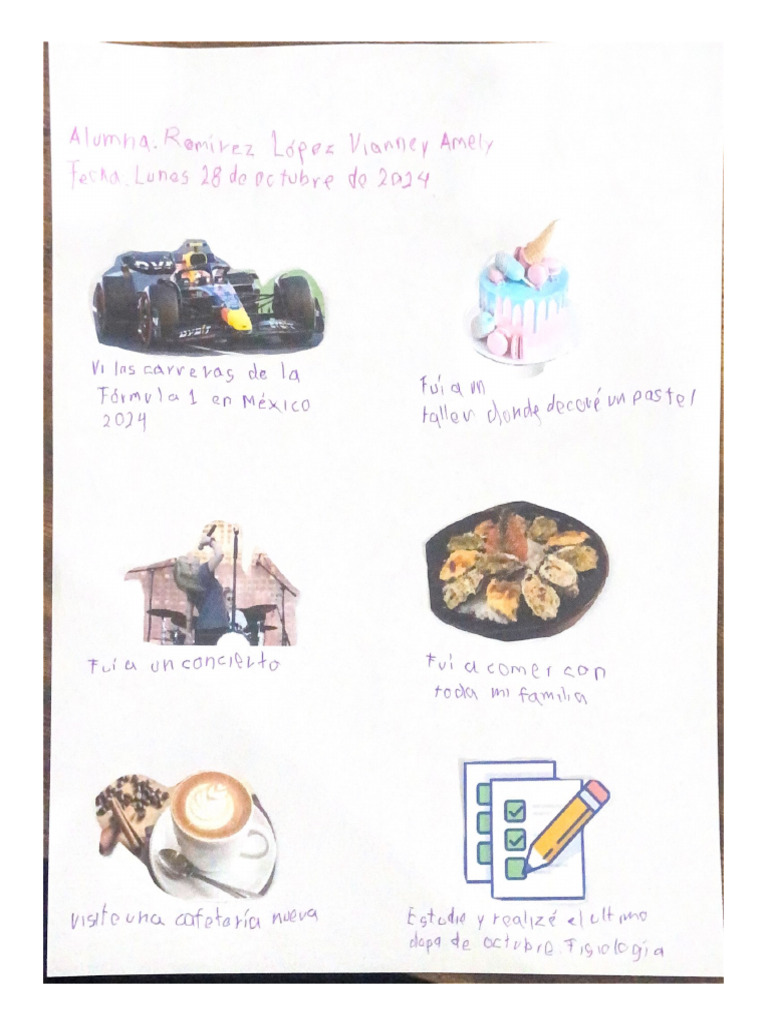 Alumna. Ramírez López Vianney Amely
Fecha. Lunes 28 de octubre de 2024
Vi las carreras de la
Fórmula 1 en México
2024
Fuí a un
taller donde decoré un pastel
Fuí a un concierto
Fuí a comer con
toda mi familia
visite una cafetaría nueva
Estudie y realizé el ultimo
dopa de octubre. Fisiología